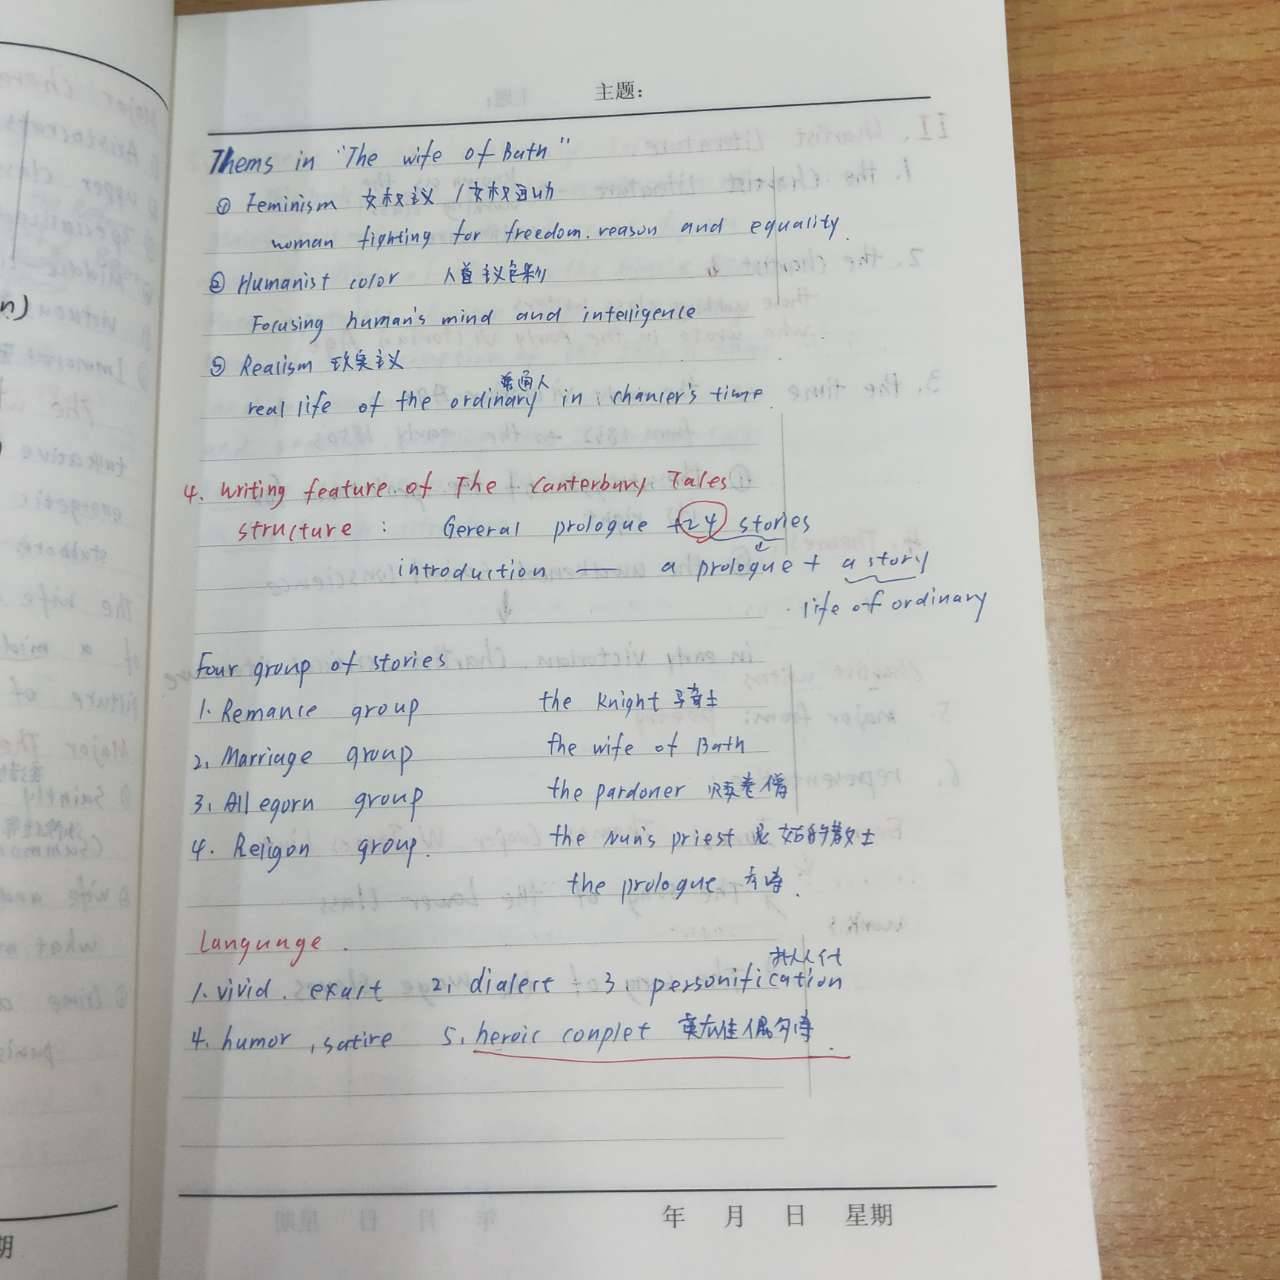 主题:
Thems in "The wife of Bath"
① Feminism 女权主义 / 女权运动
woman fighting for freedom. reason and equality.
② Humanist color 人道主义色彩
Focusing human's mind and intelligence
③ Realism 现实主义
普通人
real life of the ordinary in chancer's time.
4. writing feature of The Canterbury Tales
structure : Gereral prologue + 24 stories
introduction — a prologue + a story
life of ordinary
Four group of stories
1. Remance group the Knight 骑士
2. Marriage group the wife of Bath
3. Allegorn group the pardoner 赎卷僧
4. Reiigon group. the Nun's priest 尼姑的教士
the prologue 序诗.
Langunge.
拟人化
1. vivid. exact 2. dialect 3. personification
4. humor, satire 5. heroic conplet 英雄偶句诗.
年 月 日 星期
n)
期